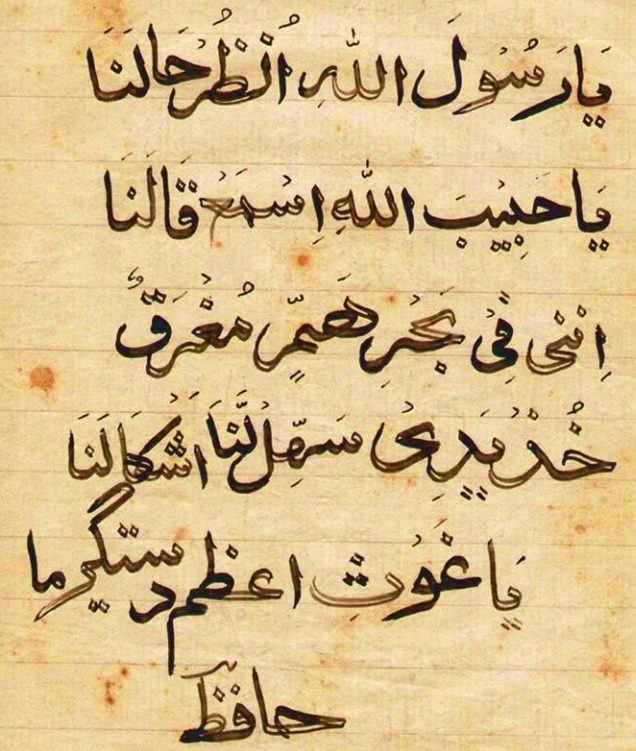 يَا رَسُولَ اللهِ اُنْظُرْ حَالَنَا
يَا حَبِيْبَ اللهِ اِسْمَعْ قَالَنَا
اِنَّنِی فِیْ بَحْرِ هَمٍّ مُغْرَقٌ
خُذْ يَدِیْ سَهِّلْ لَّنَا اَشْکَالَنَا
يَا غَوْثِ اعظم دستگیر ما
حافظ